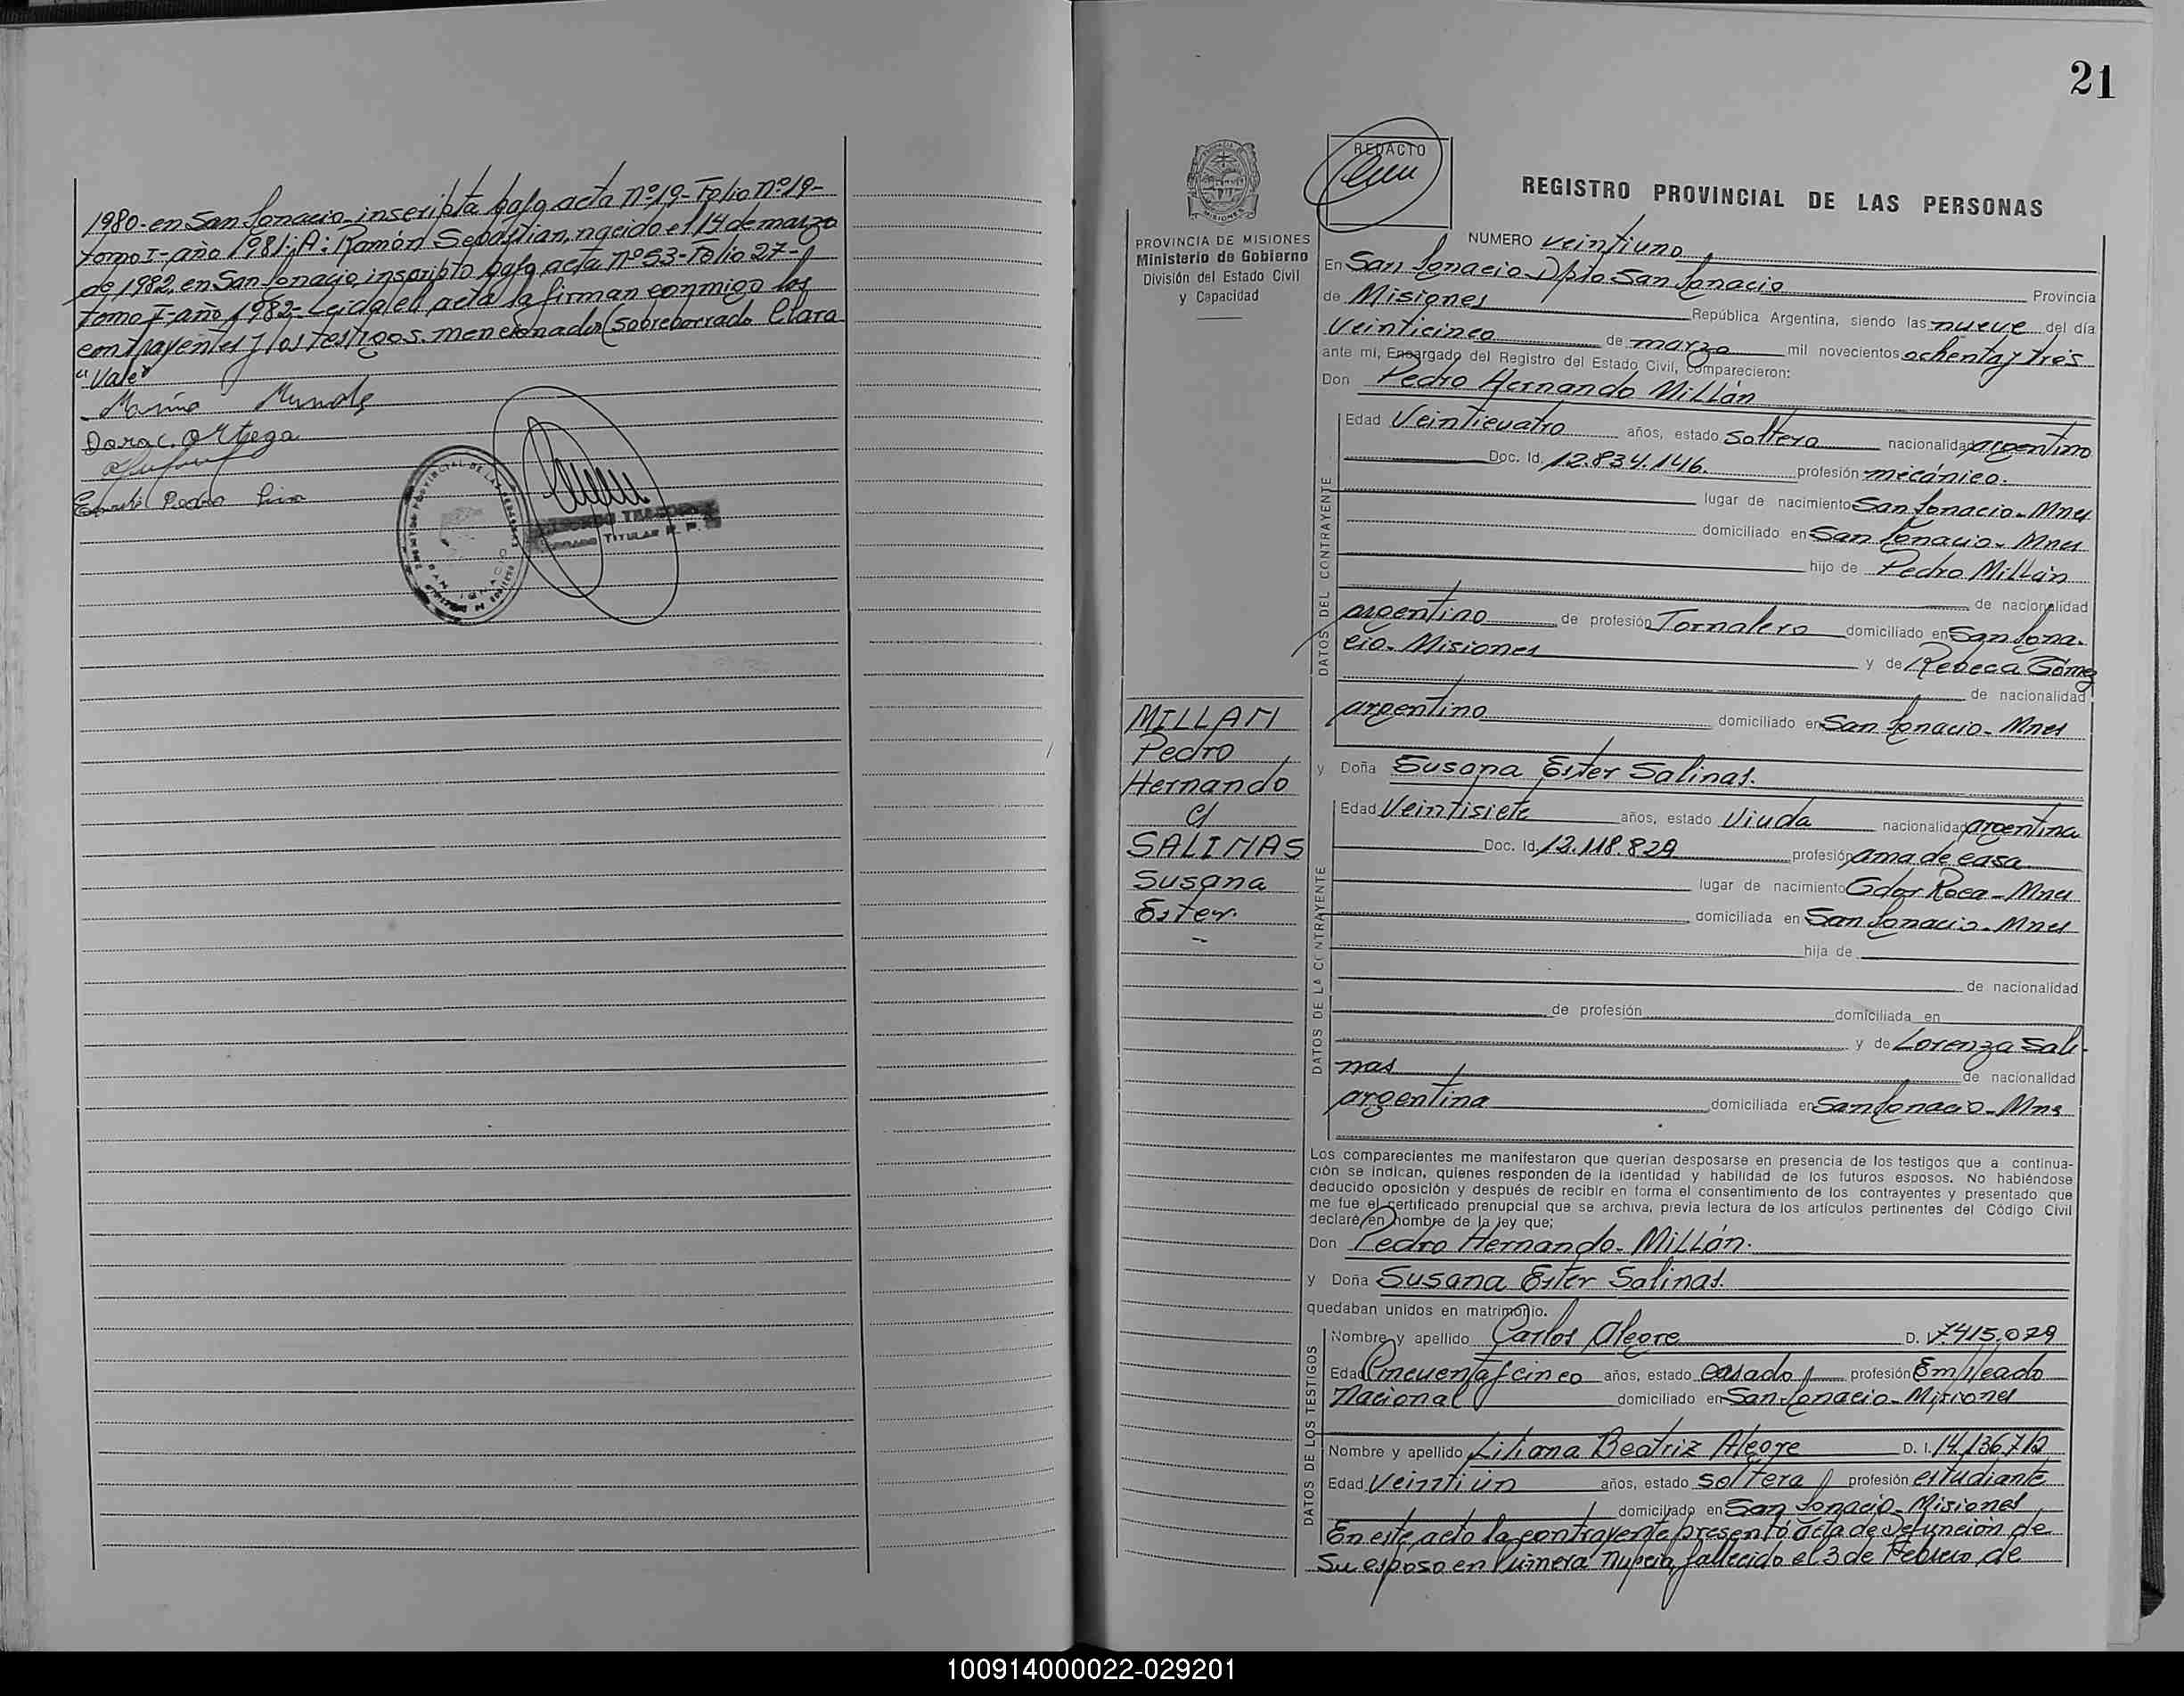 1980-en San Ignacio-inscripta bajo acta nº19-Folio nº19-
tomo I-año 1981; A: Ramón Sebastian, nacido el 14 de marzo
de 1982, en San Ignacio, inscripto bajo acta nº53-Folio 27-
tomo I-año 1982- Leida el acta la firman conmigo los
contrayentes y los testigos mencionados (sobreborrado Clara
"Vale"
Marina
Dora C. Ortega
Pedro
SAN IGNACIO
TITULAR R. P.
21
REDACTO
REGISTRO PROVINCIAL DE LAS PERSONAS
MISIONES
PROVINCIA DE MISIONES
Ministerio de Gobierno
División del Estado Civil
y Capacidad
NUMERO veintiuno
En San Ignacio-Dpto San Ignacio Provincia
de Misiones República Argentina, siendo las nueve del día
Veinticinco de marzo mil novecientos ochenta y tres
ante mi, Encargado del Registro del Estado Civil, Comparecieron:
Don Pedro Hernando Millán
DATOS DEL CONTRAYENTE
Edad Veinticuatro años, estado soltero nacionalidad argentino
Doc. Id. 12.834.146. profesión mecánico.
lugar de nacimiento San Ignacio-Mnes
domiciliado en San Ignacio-Mnes
hijo de Pedro Millán
de nacionalidad
argentino de profesión Jornalero domiciliado en San Igna-
cio-Misiones y de Rebeca Gómez
de nacionalidad
argentino domiciliado en San Ignacio-Mnes
MILLAN
Pedro
Hernando
c/
SALINAS
Susana
Ester.
y Doña Susana Ester Salinas.
DATOS DE LA CONTRAYENTE
Edad Veintisiete años, estado Viuda nacionalidad argentina
Doc. Id. 12.118.829 profesión ama de casa
lugar de nacimiento Gdor Roca-Mnes
domiciliada en San Ignacio-Mnes
hija de
de nacionalidad
de profesión domiciliada en
y de Lorenza Sali-
nas de nacionalidad
argentina domiciliada en San Ignacio-Mns
Los comparecientes me manifestaron que querían desposarse en presencia de los testigos que a continua-
ción se indican, quienes responden de la identidad y habilidad de los futuros esposos. No habiéndose
deducido oposición y después de recibir en forma el consentimiento de los contrayentes y presentado que
me fue el certificado prenupcial que se archiva, previa lectura de los artículos pertinentes del Código Civil
declaré en nombre de la ley que:
Don Pedro Hernando Millán.
y Doña Susana Ester Salinas.
quedaban unidos en matrimonio.
DATOS DE LOS TESTIGOS
Nombre y apellido Carlos Alegre D. I. 7.415.029
Edad Cincuenta y cinco años, estado casado profesión Empleado
Nacional domiciliado en San Ignacio-Misiones
Nombre y apellido Liliana Beatriz Alegre D. I. 14.136.712
Edad Veintiún años, estado soltera profesión estudiante
domiciliado en San Ignacio-Misiones
En este acto la contrayente presentó acta de defunción de
su esposo en Primera Nupcia, fallecido el 3 de Febrero de
100914000022-029201